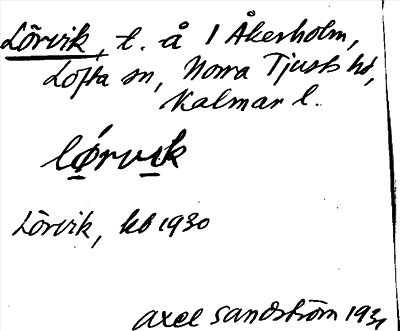 Lörvik, t. å 1 Åkerholm,
Lofta sn, Norra Tjusts hd,
Kalmar l.
lǿrvik
Lörvik, kb 1930
Axel Sandström